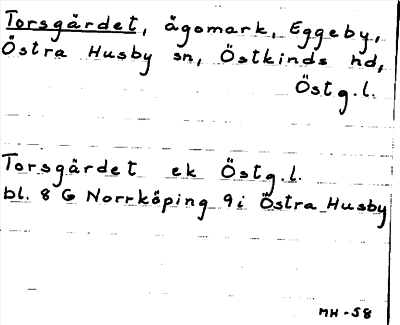 Torsgärdet, ägomark, Eggeby,
Östra Husby sn, Östkinds hd,
Östg.l.
Torsgärdet ek Östg.l.
bl. 8 G Norrköping 9i Östra Husby
MH-58